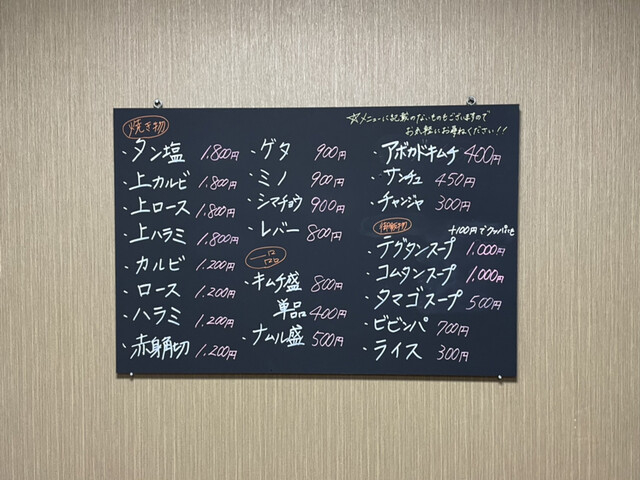 焼き物
・タン塩 1,800円
・上カルビ 1,800円
・上ロース 1,800円
・上ハラミ 1,800円
・カルビ 1,200円
・ロース 1,200円
・ハラミ 1,200円
・赤身角切 1,200円
・ゲタ 900円
・ミノ 900円
・シマチョウ 900円
・レバー 800円
一品
・キムチ盛 800円
単品 400円
・ナムル盛 500円
☆メニューに記載のないものもございますので
お気軽にお尋ねください!!
・アボカドキムチ 400円
・サンチュ 450円
・チャンジャ 300円
御飯物
+100円でクッパに
・テグタンスープ 1,000円
・コムタンスープ 1,000円
・タマゴスープ 500円
・ビビンパ 700円
・ライス 300円